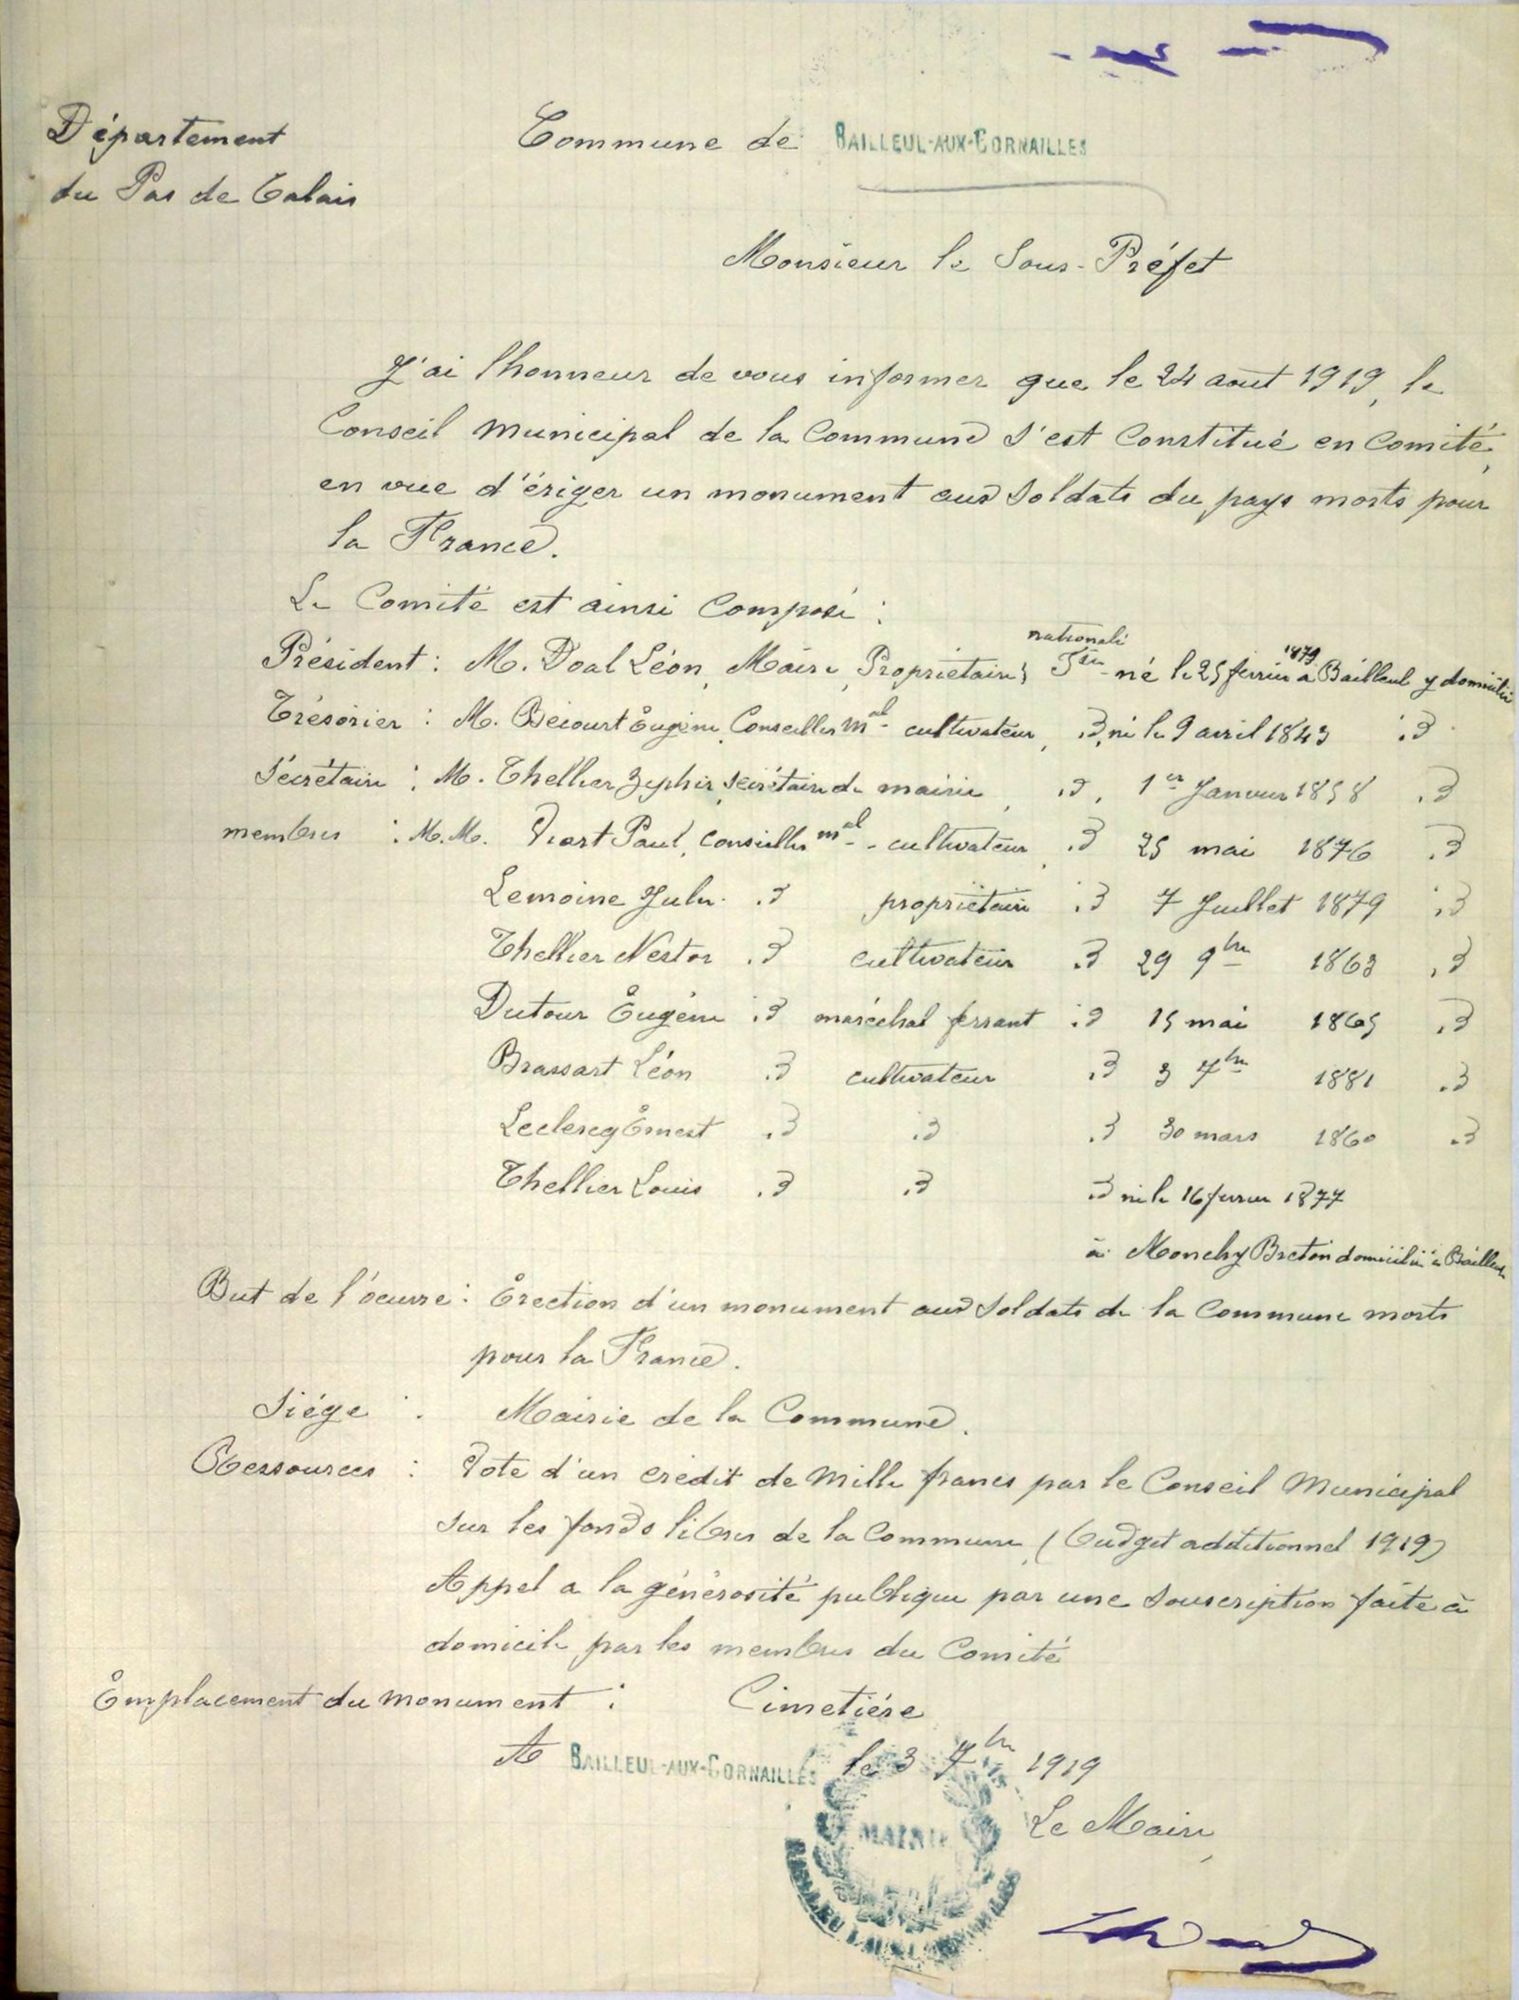 Département
du Pas de Calais
Commune de BAILLEUL-AUX-CORNAILLES
Monsieur le Sous-Préfet
J'ai l'honneur de vous informer que le 24 août 1919, le
Conseil municipal de la Commune s'est constitué en Comité,
en vue d'ériger un monument aux soldats du pays morts pour
la France.
Le Comité est ainsi composé :
Président : M. Doal Léon, Maire, Propriétaire, nationalité Fse né le 25 février 1879 à Bailleul y domicilié
Trésorier : M. Bécourt Eugène, Conseiller mal - cultivateur, id, né le 9 avril 1843 id
Sécrétaire : M. Thellier Zéphir, secrétaire de mairie, id, 1er Janvier 1858 id
membres : M.M. Viart Paul, conseiller mal - cultivateur, id 25 mai 1876 id
Lemoine Jules id propriétaire id 7 Juillet 1879 id
Thellier Nestor id cultivateur id 29 9bre 1863 id
Dutour Eugène id maréchal ferrant id 15 mai 1865 id
Brassart Léon id cultivateur id 3 7bre 1881 id
Leclercq Ernest id id id 30 mars 1860 id
Thellier Louis id id id né le 16 février 1877
à Monchy Breton domicilié à Bailleul
But de l'oeuvre : Érection d'un monument aux soldats de la Commune morts
pour la France.
Siége : Mairie de la Commune.
Ressources : Vote d'un crédit de mille francs par le Conseil Municipal
sur les fonds libres de la Commune (budget additionnel 1919)
Appel a la générosité publique par une souscription faite à
domicile par les membres du Comité
Emplacement du monument : Cimetière
A BAILLEUL-AUX-CORNAILLES le 3 7bre 1919
Le Maire,
MAIRIE